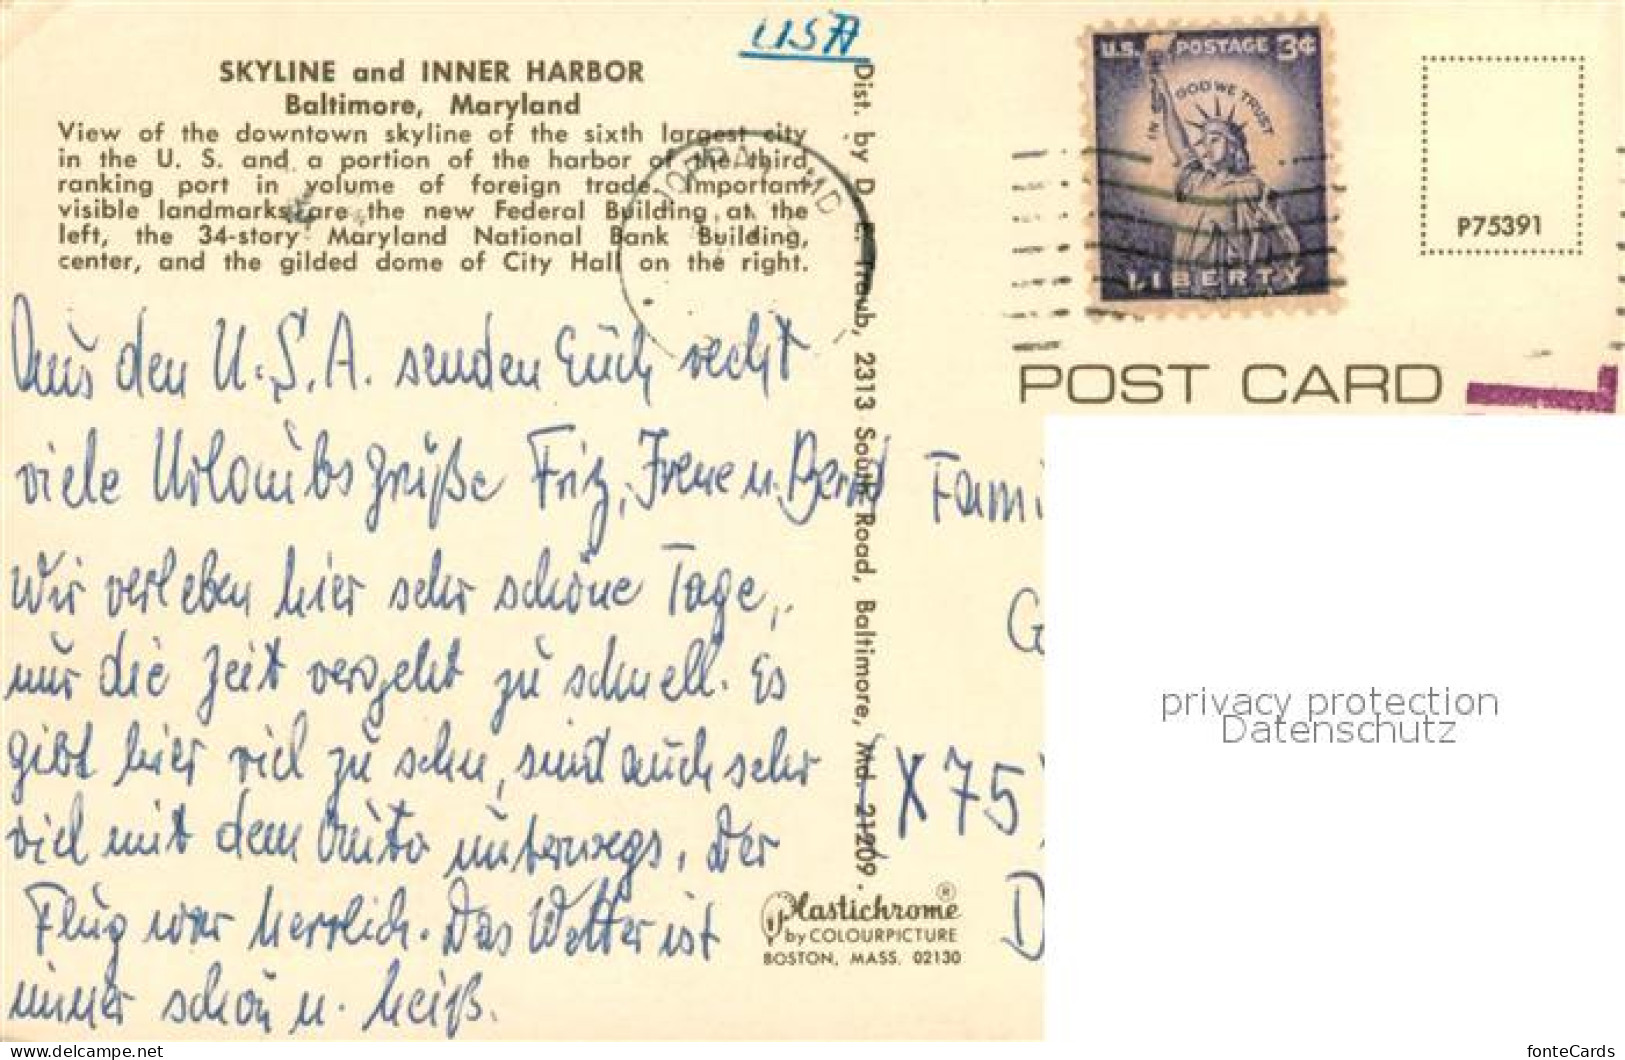 USA
SKYLINE and INNER HARBOR
Baltimore, Maryland
View of the downtown skyline of the sixth largest city
in the U. S. and a portion of the harbor of the third
ranking port in volume of foreign trade. Important
visible landmarks are the new Federal Building at the
left, the 34-story Maryland National Bank Building,
center, and the gilded dome of City Hall on the right.
Aus den U.S.A. senden Euch recht
viele Urlaubsgrüße Friz, Irene u. Bernd
Wir verleben hier sehr schöne Tage,
nur die Zeit vergeht zu schnell. Es
gibt hier viel zu sehn, sind auch sehr
viel mit dem Auto unterwegs. Der
Flug war herrlich. Das Wetter ist
immer schön u. heiß.
Dist. by D. E. Traub, 2313 South Road, Baltimore, Md. 21209.
Plastichrome ®
by COLOURPICTURE
BOSTON, MASS. 02130
MD
U.S. POSTAGE 3¢
IN GOD WE TRUST
LIBERTY
P75391
POST CARD
Fami
G
X 75
D
privacy protection
Datenschutz
https://www.ak-ansichtskarten.de
fonteCards